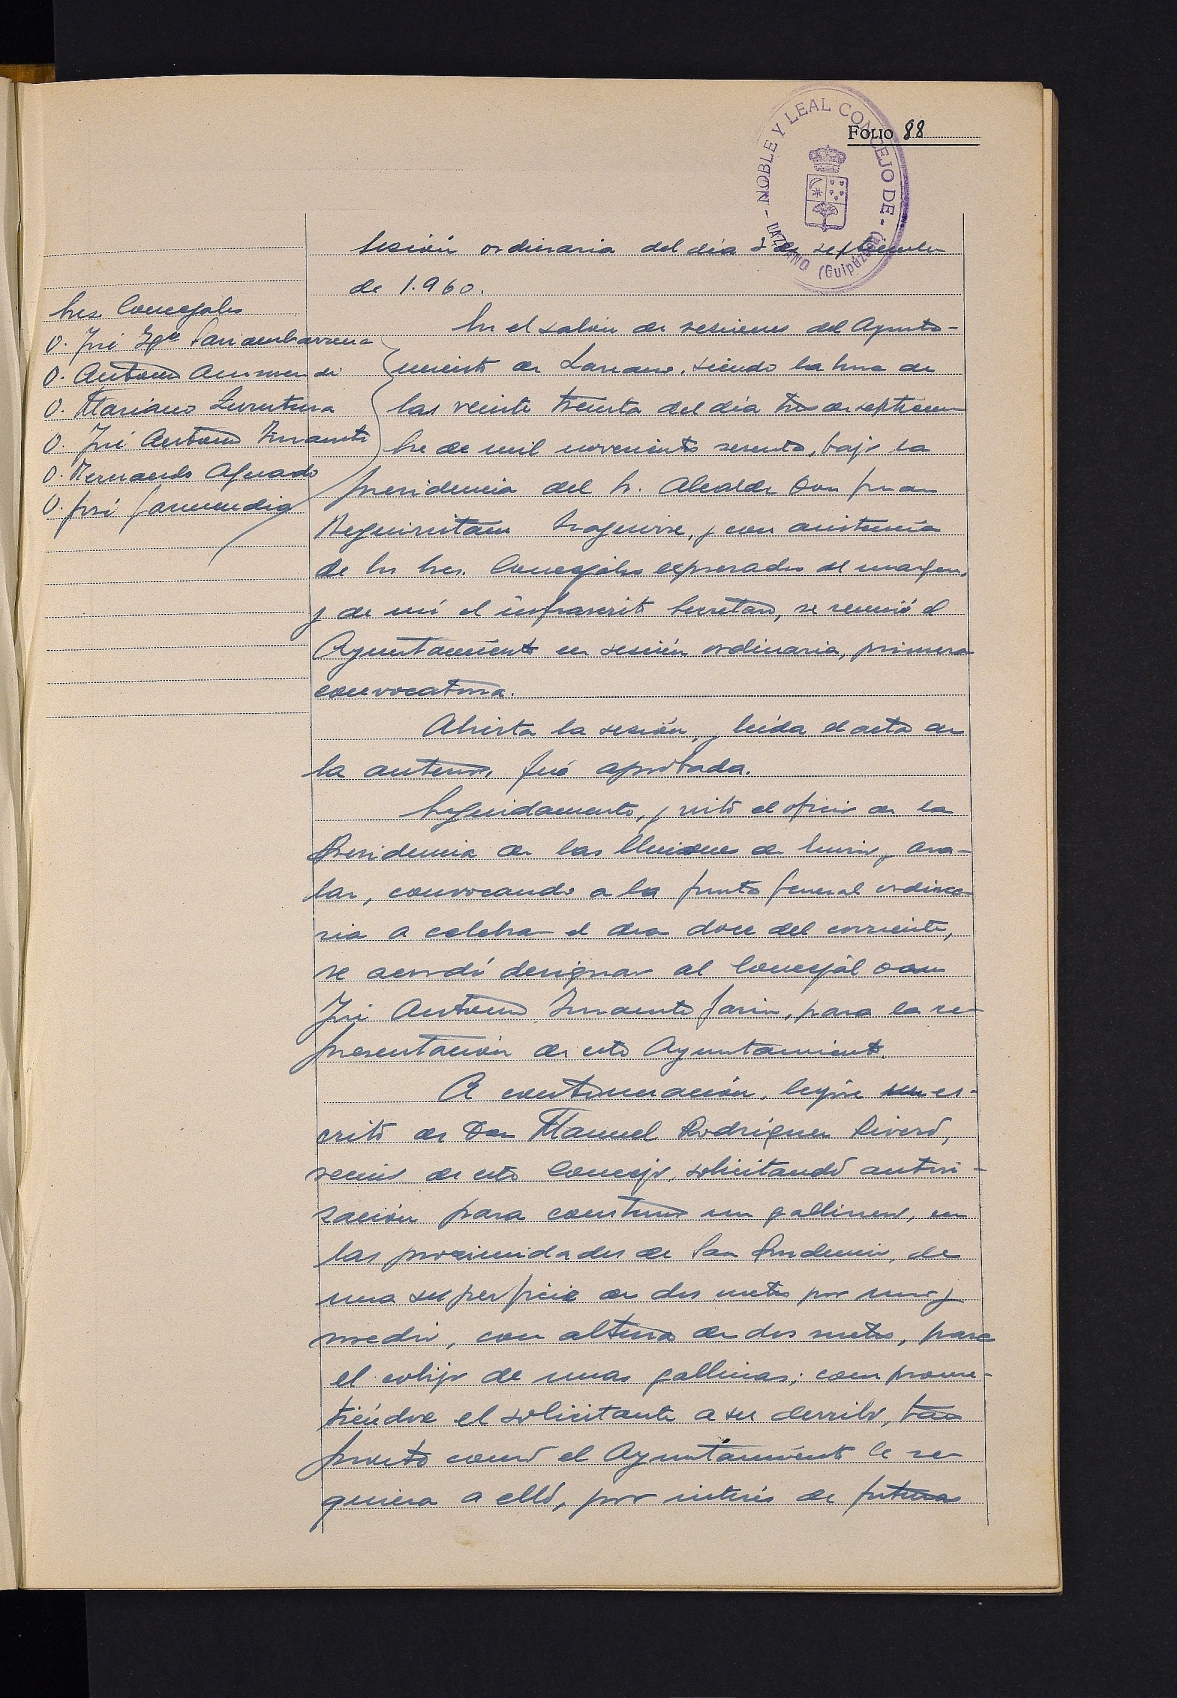 FOLIO 88
- NOBLE Y LEAL CONCEJO DE - LAZCANO (Guipúzcoa)
Sesión ordinaria del día 3 de septiembre
de 1.960.
Sres. Concejales
D. José Igº
D. Antonio
D. Mariano
D. José Antonio Insausti
D. Fernando Aguado
D. José Garmendia
En el salón de sesiones del Ayunta-
miento de Lazcano, siendo la hora de
las veinte treinta del día tres de septiem-
bre de mil novecientos sesenta, bajo la
presidencia del Sr. Alcalde Don Juan
Beguiristain, y con asistencia
de los Sres. Concejales expresados al margen,
y de mí el infrascrito Secretario, se reunió el
Ayuntamiento en sesión ordinaria, primera
convocatoria.
Abierta la sesión, y leída el acta de
la anterior, fué aprobada.
Seguidamente, y visto el oficio de la
Presidencia de las Uniones de Enirio y Ara-
lar, convocando a la Junta General ordina-
ria a celebrar el día doce del corriente,
se acordó designar al Concejal Don
José Antonio Insausti, para la re-
presentación de este Ayuntamiento.
A continuación, leyóse un es-
crito de Don Manuel Rodríguez Rivero,
vecino de este Concejo, solicitando autori-
zación para construir un gallinero, en
las proximidades de San Prudencio, de
una superficie de dos metros por uno y
medio, con altura de dos metros, para
el cobijo de unas gallinas; comprome-
tiéndose el solicitante a su derribo, tan
pronto como el Ayuntamiento le re-
quiera a ello, por interés de futura